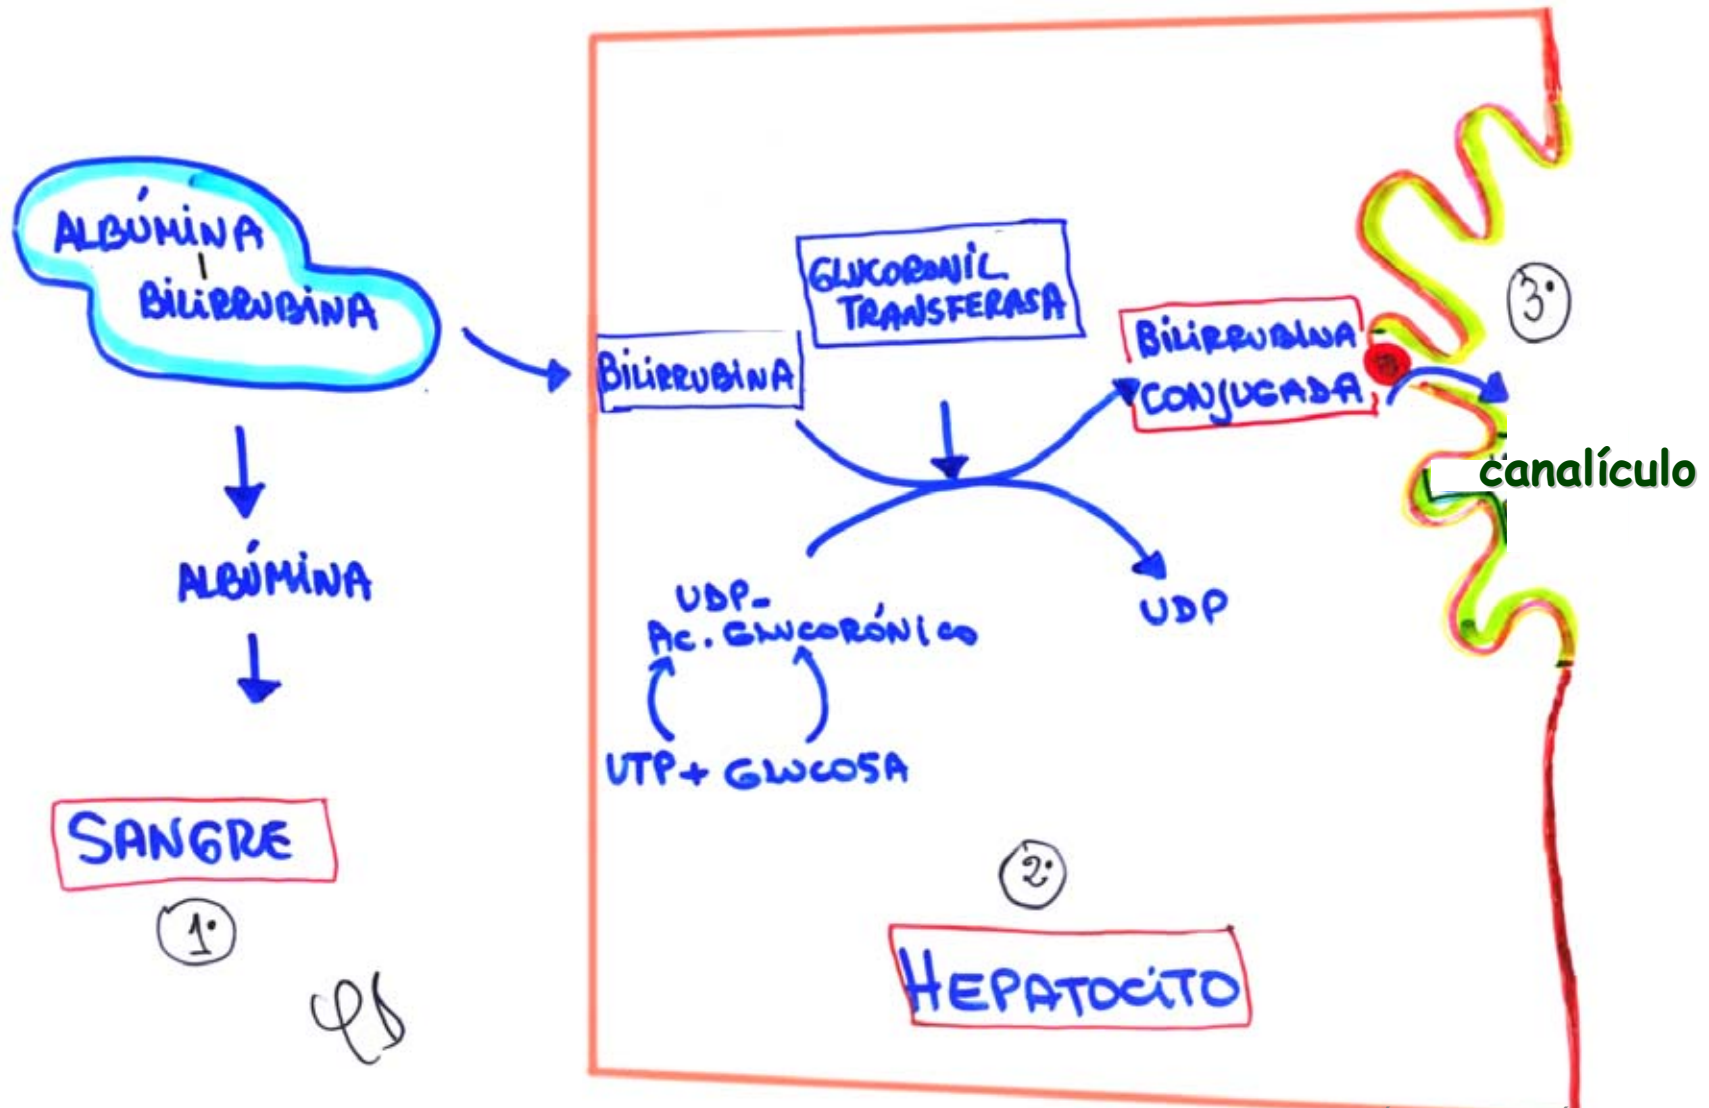 ALBÚMINA
BILIRRUBINA
ALBÚMINA
SANGRE
1º
BILIRRUBINA
GLUCORONIL
TRANSFERASA
BILIRRUBINA
CONJUGADA
UDP-
Ac. GLUCORÓNICO
UDP
UTP + GLUCOSA
2º
HEPATOCITO
3º
canalículo